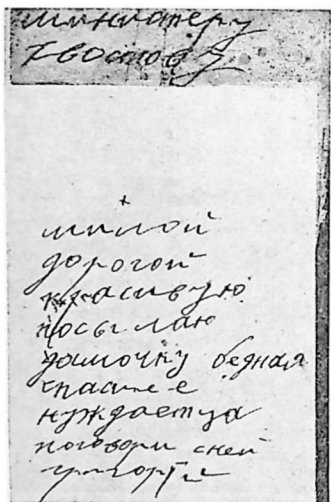 министеру
хвостову
+
милой
дорогой
красивую
посылаю
дамочку бедная
спаси ее
нуждаетца
поговори сней
григорий